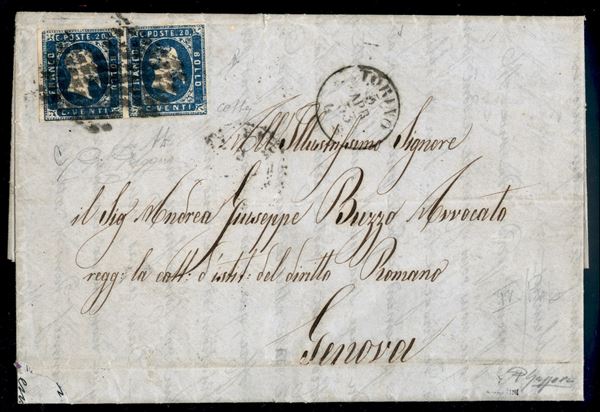 C. POSTE. 20. C. POSTE. 20.
FRANCO BOLLO FRANCO BOLLO
C. VENTI C. VENTI
TORINO
APR
All Illustrissimo Signore
il Sig Andrea Giuseppe Buzzo Avvocato
regg: la catt: d'istit: del diritto Romano
Genova